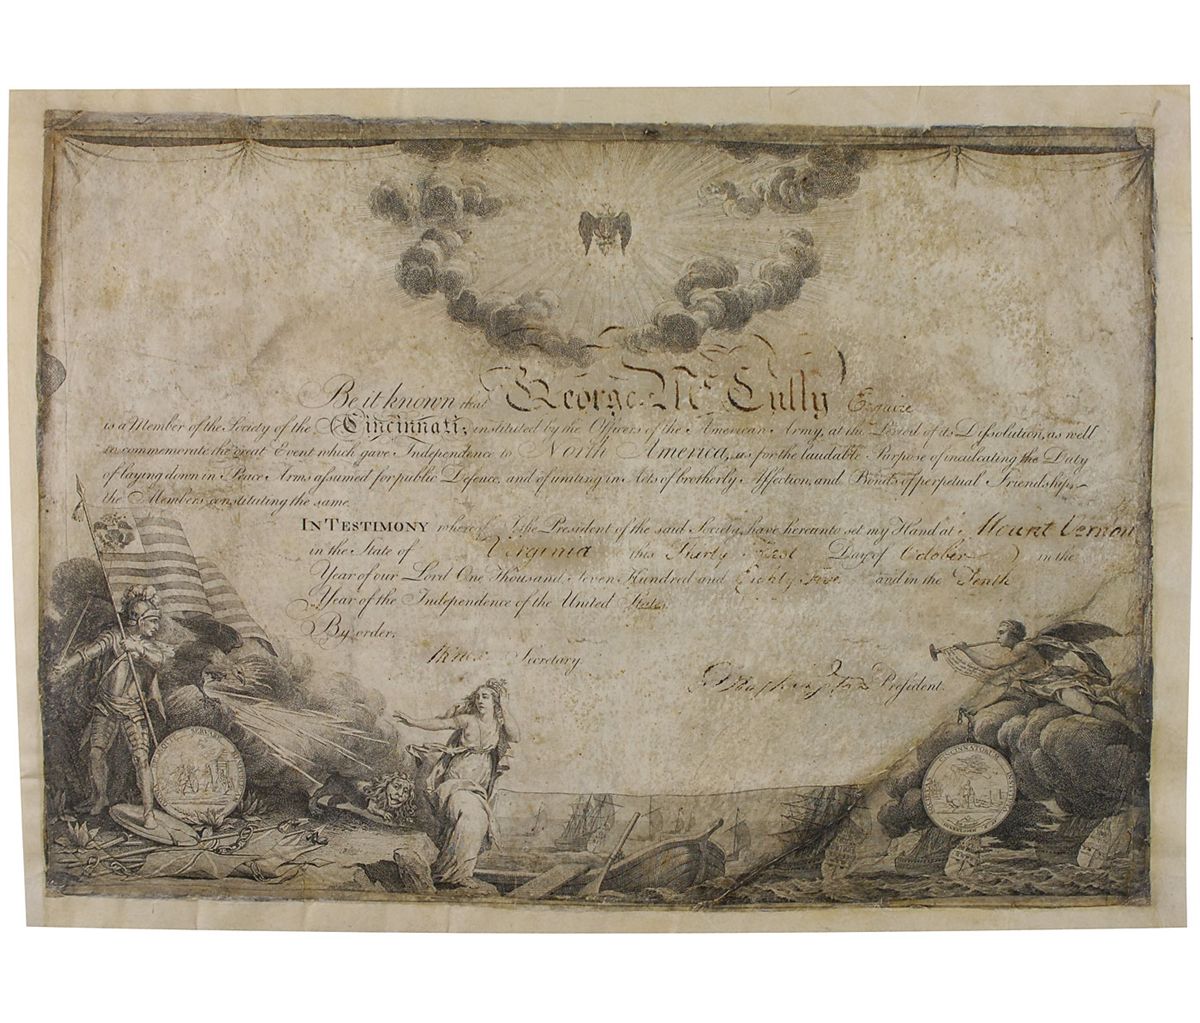 Be it known that George McCully Esquire
is a Member of the Society of the Cincinnati; instituted by the Officers of the American Army, at the Period of its Dissolution, as well
to commemorate the great Event which gave Independence to North America, as for the laudable Purpose of inculcating the Duty
of laying down in Peace Arms assumed for public Defence, and of uniting in Acts of brotherly Affection, and Bonds of perpetual Friendship,
the Members constituting the same.
In Testimony whereof I, the President of the said Society, have hereunto set my Hand at Mount Vernon
in the State of Virginia this Thirty First Day of October in the
Year of our Lord One Thousand Seven Hundred and Eighty Five and in the Tenth
Year of the Independence of the United States.
By order,
Knox Secretary.
G Washington President.
SERVARE
CINCINNATORUM